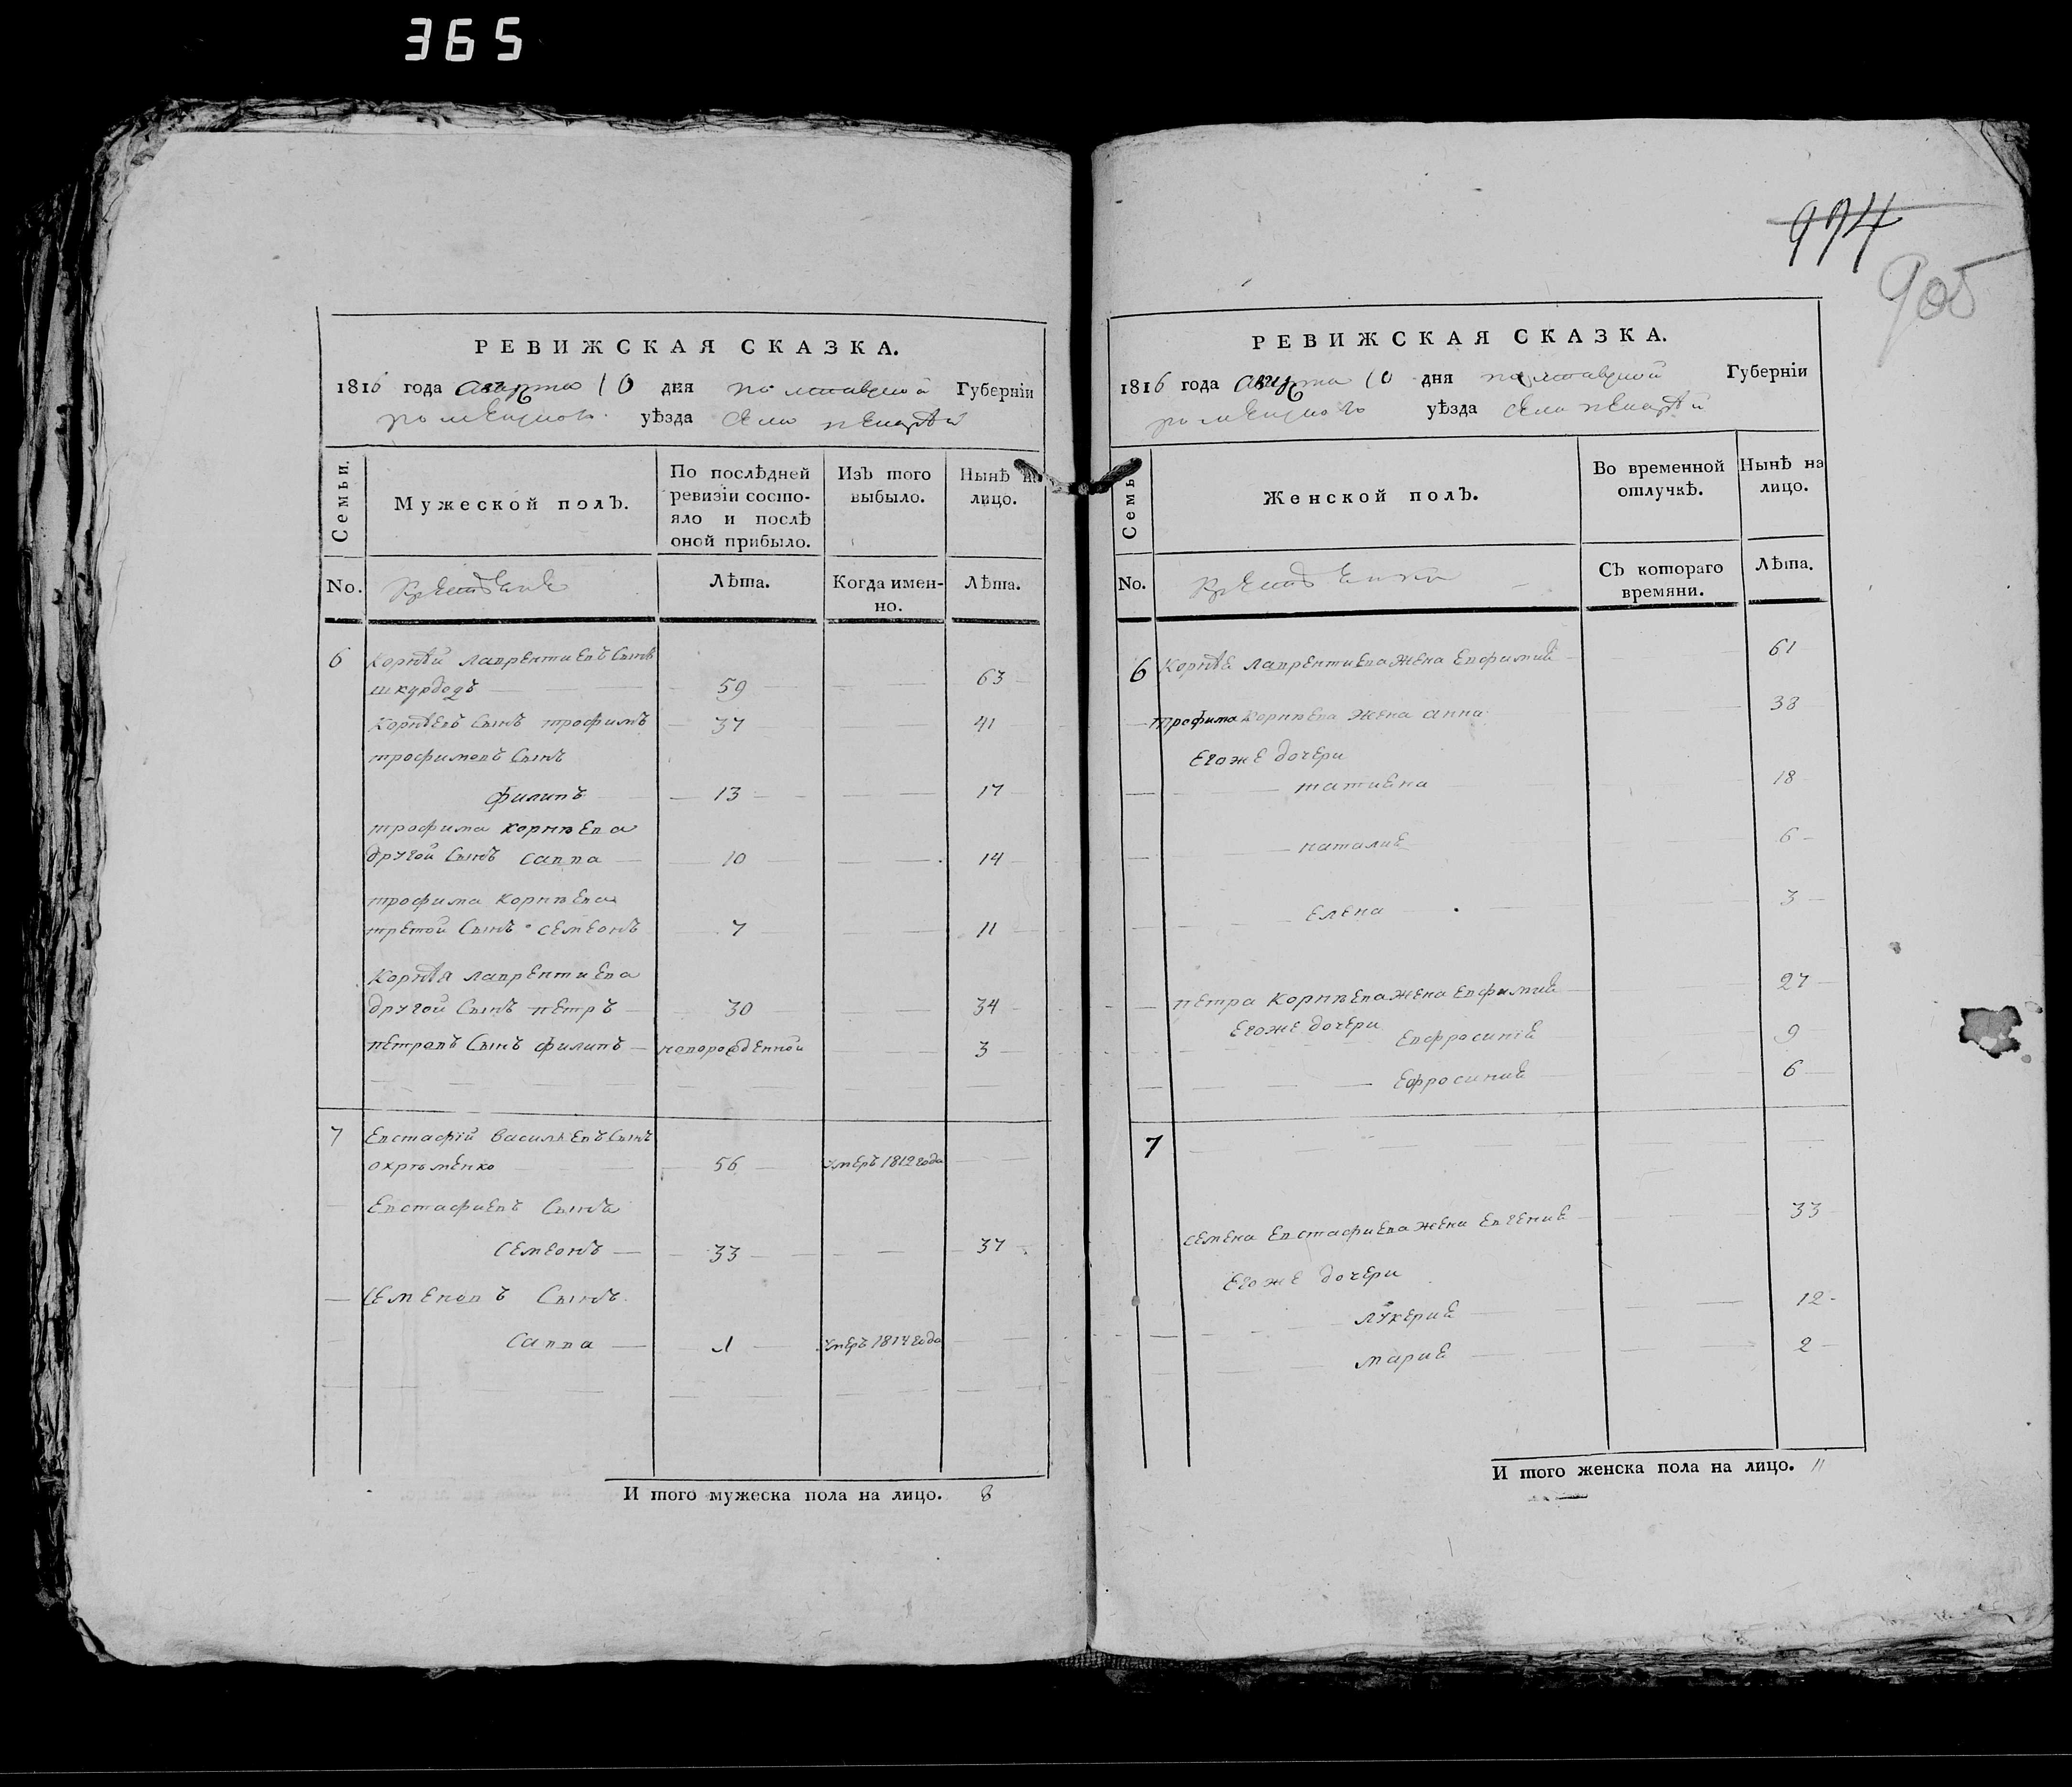 365
РЕВИЖСКАЯ СКАЗКА.
1816 года 10 дня полтавской Губерніи
роменского уѣзда села
Семьи.
Мужеской полъ.
По послѣдней ревизіи состо-
яло и послѣ
оной прибыло.
Изъ того
выбыло.
Нынѣ на
лицо.
No.
Лѣта.
Когда имен-
но.
Лѣта.
6 Корнѣй лаврентиевъ сынъ
шкурдодъ 59 63
Корнѣевъ сынъ трофимъ 37 41
трофимовъ сынъ
филипъ 13 17
трофима корнѣева
другой сынъ савва 10 14
трофима корнѣева
третой сынъ семеонъ 7 11
Корнѣя лаврентиева
другой сынъ петръ 30 34
петровъ сынъ филипъ новорожденной 3
7 Евстафій васильевъ сынъ
охрѣменко 56 умеръ 1812 года
Евстафиевъ сынъ
семеонъ 33 37
семеновъ сынъ
савва 1 умеръ 1814 года
И того мужеска пола на лицо. 8
974
905
РЕВИЖСКАЯ СКАЗКА.
1816 года 10 дня полтавской Губерніи
роменского уѣзда села
Семьи
Женской полъ.
Во временной
отлучкѣ.
Нынѣ на
лицо.
No.
Съ котораго
времяни.
Лѣта.
6 Корнѣе лаврентиева жена евфимие 61
трофима корнѣева жена анна 38
егоже дочери
татиена 18
наталие 6
елена 3
петра корнѣева жена евфимие 27
егоже дочери евфросиніе 9
ефросиние 6
7
семена евстафиева жена евгение 33
егоже дочери
лукерие 12
марие 2
И того женска пола на лицо. 11